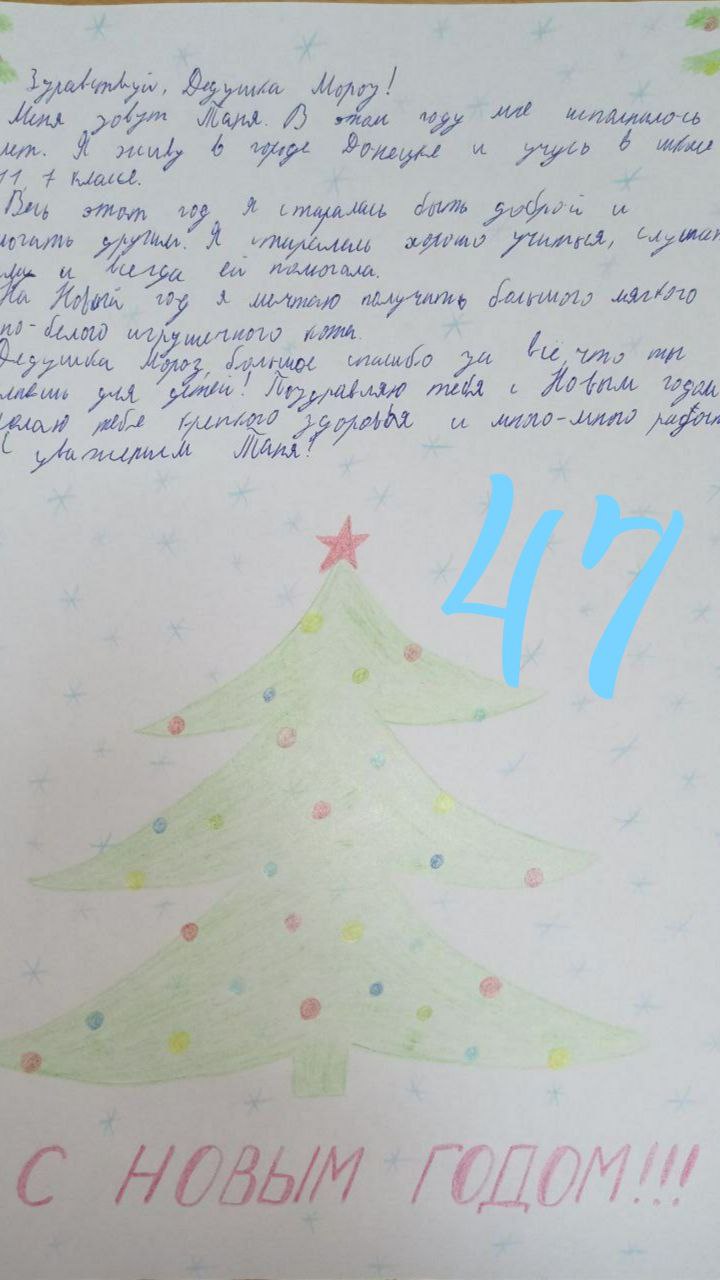 Здравствуй, Дедушка Мороз!
Меня зовут Таня. В этом году мне исполнилось
лет. Я живу в городе Донецке и учусь в школе
11, 7 классе.
Весь этот год я старалась быть доброй и
могать другим. Я старалась хорошо учиться, слушат
и всегда ей помогала.
На Новый год я мечтаю получить большого мягкого
но-белого игрушечного кота.
Дедушка Мороз, большое спасибо за всё, что ты
лаешь для детей! Поздравляю тебя с Новым годом
елаю тебе крепкого здоровья и много-много
С уважением Таня!
47
С НОВЫМ ГОДОМ!!!